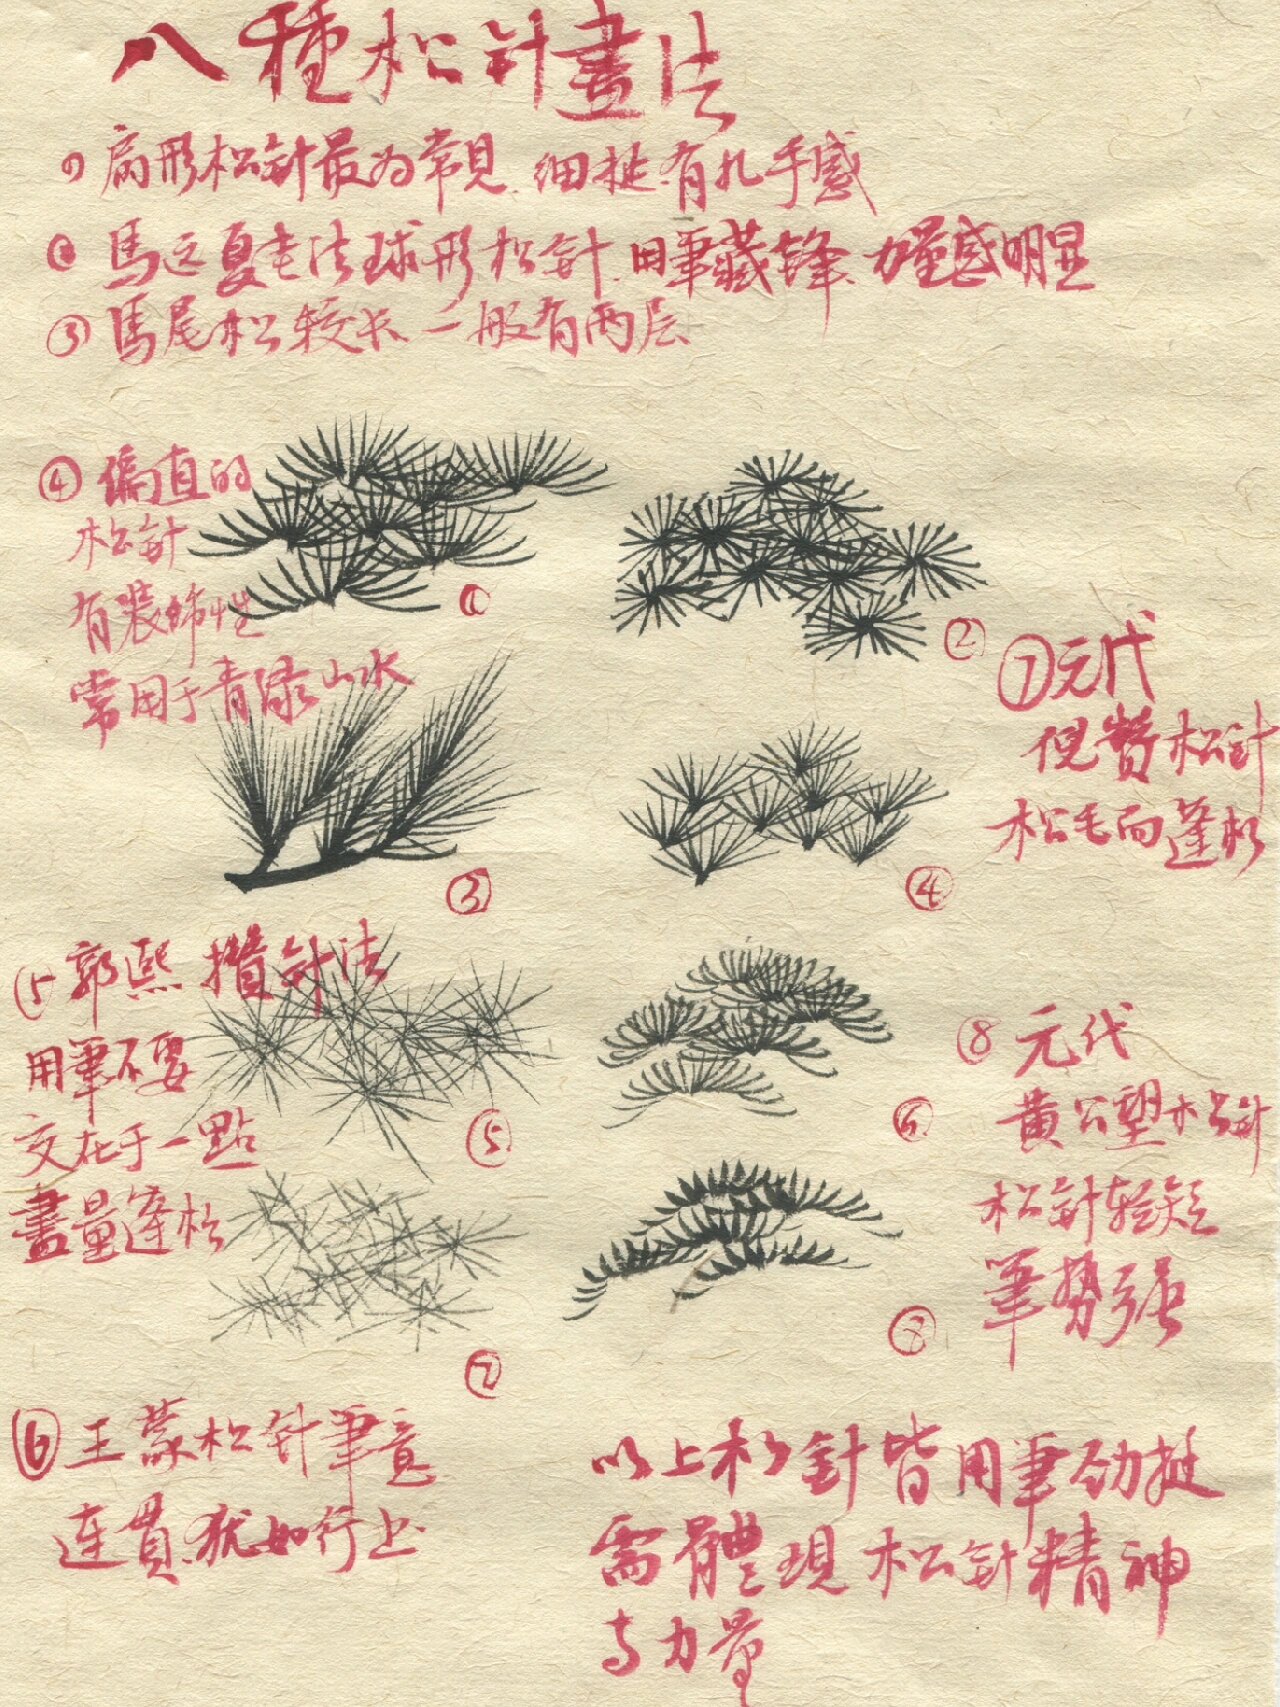 八種松針畫法
① 扇形松針最为常見 细挺有扎手感
② 馬远夏圭法球形松針 用筆藏锋 力量感明显
③ 馬尾松较长 一般有两层
④ 偏直的
松針
有装饰性
常用于青绿山水
①
②
③
④
⑦ 元代
倪瓒松針
松毛而蓬松
⑤ 郭熙 攒針法
用筆不要
交在于一點
畫量蓬松
⑤
⑥
⑦
⑧
⑧ 元代
黄公望松針
松針较短
筆势强
⑥ 王蒙松針筆意
連貫 犹如行上
以上松針皆用筆劲挺
需體現松針精神
与力量